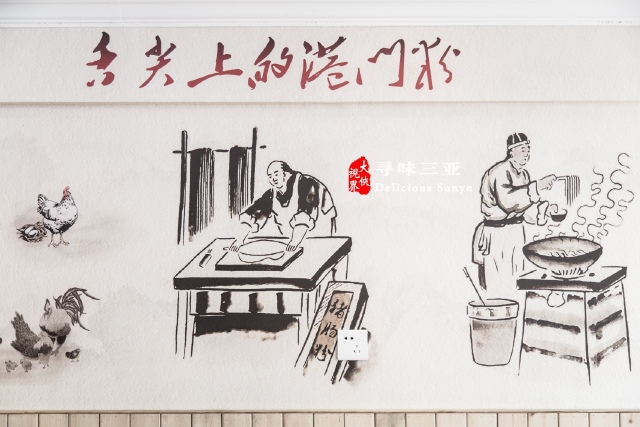 舌尖上的港门粉
大侠
視界
寻味三亚
Delicious Sanya
猪肠粉